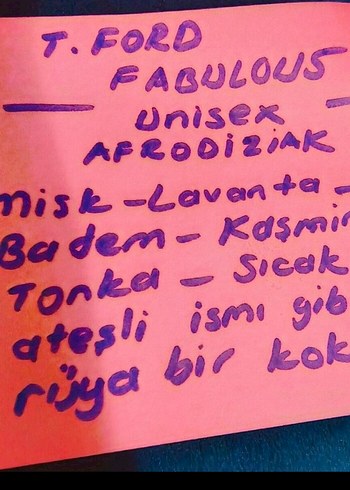 T. FORD
FABULOUS
unisex
AFRODiZiAK
misk - Lavanta -
Badem - Kaşmir
Tonka - Sıcak
ateşli ismi gib
rüya bir kok